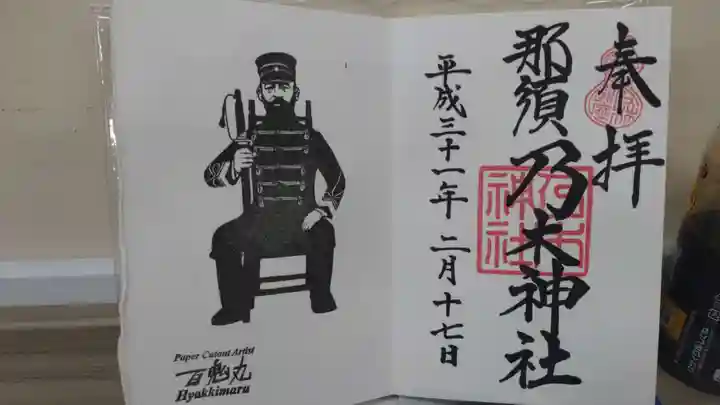 奉拝
那須乃木神社
平成三十一年 二月十七日
Paper Cutout Artist
百鬼丸
Hyakkimaru